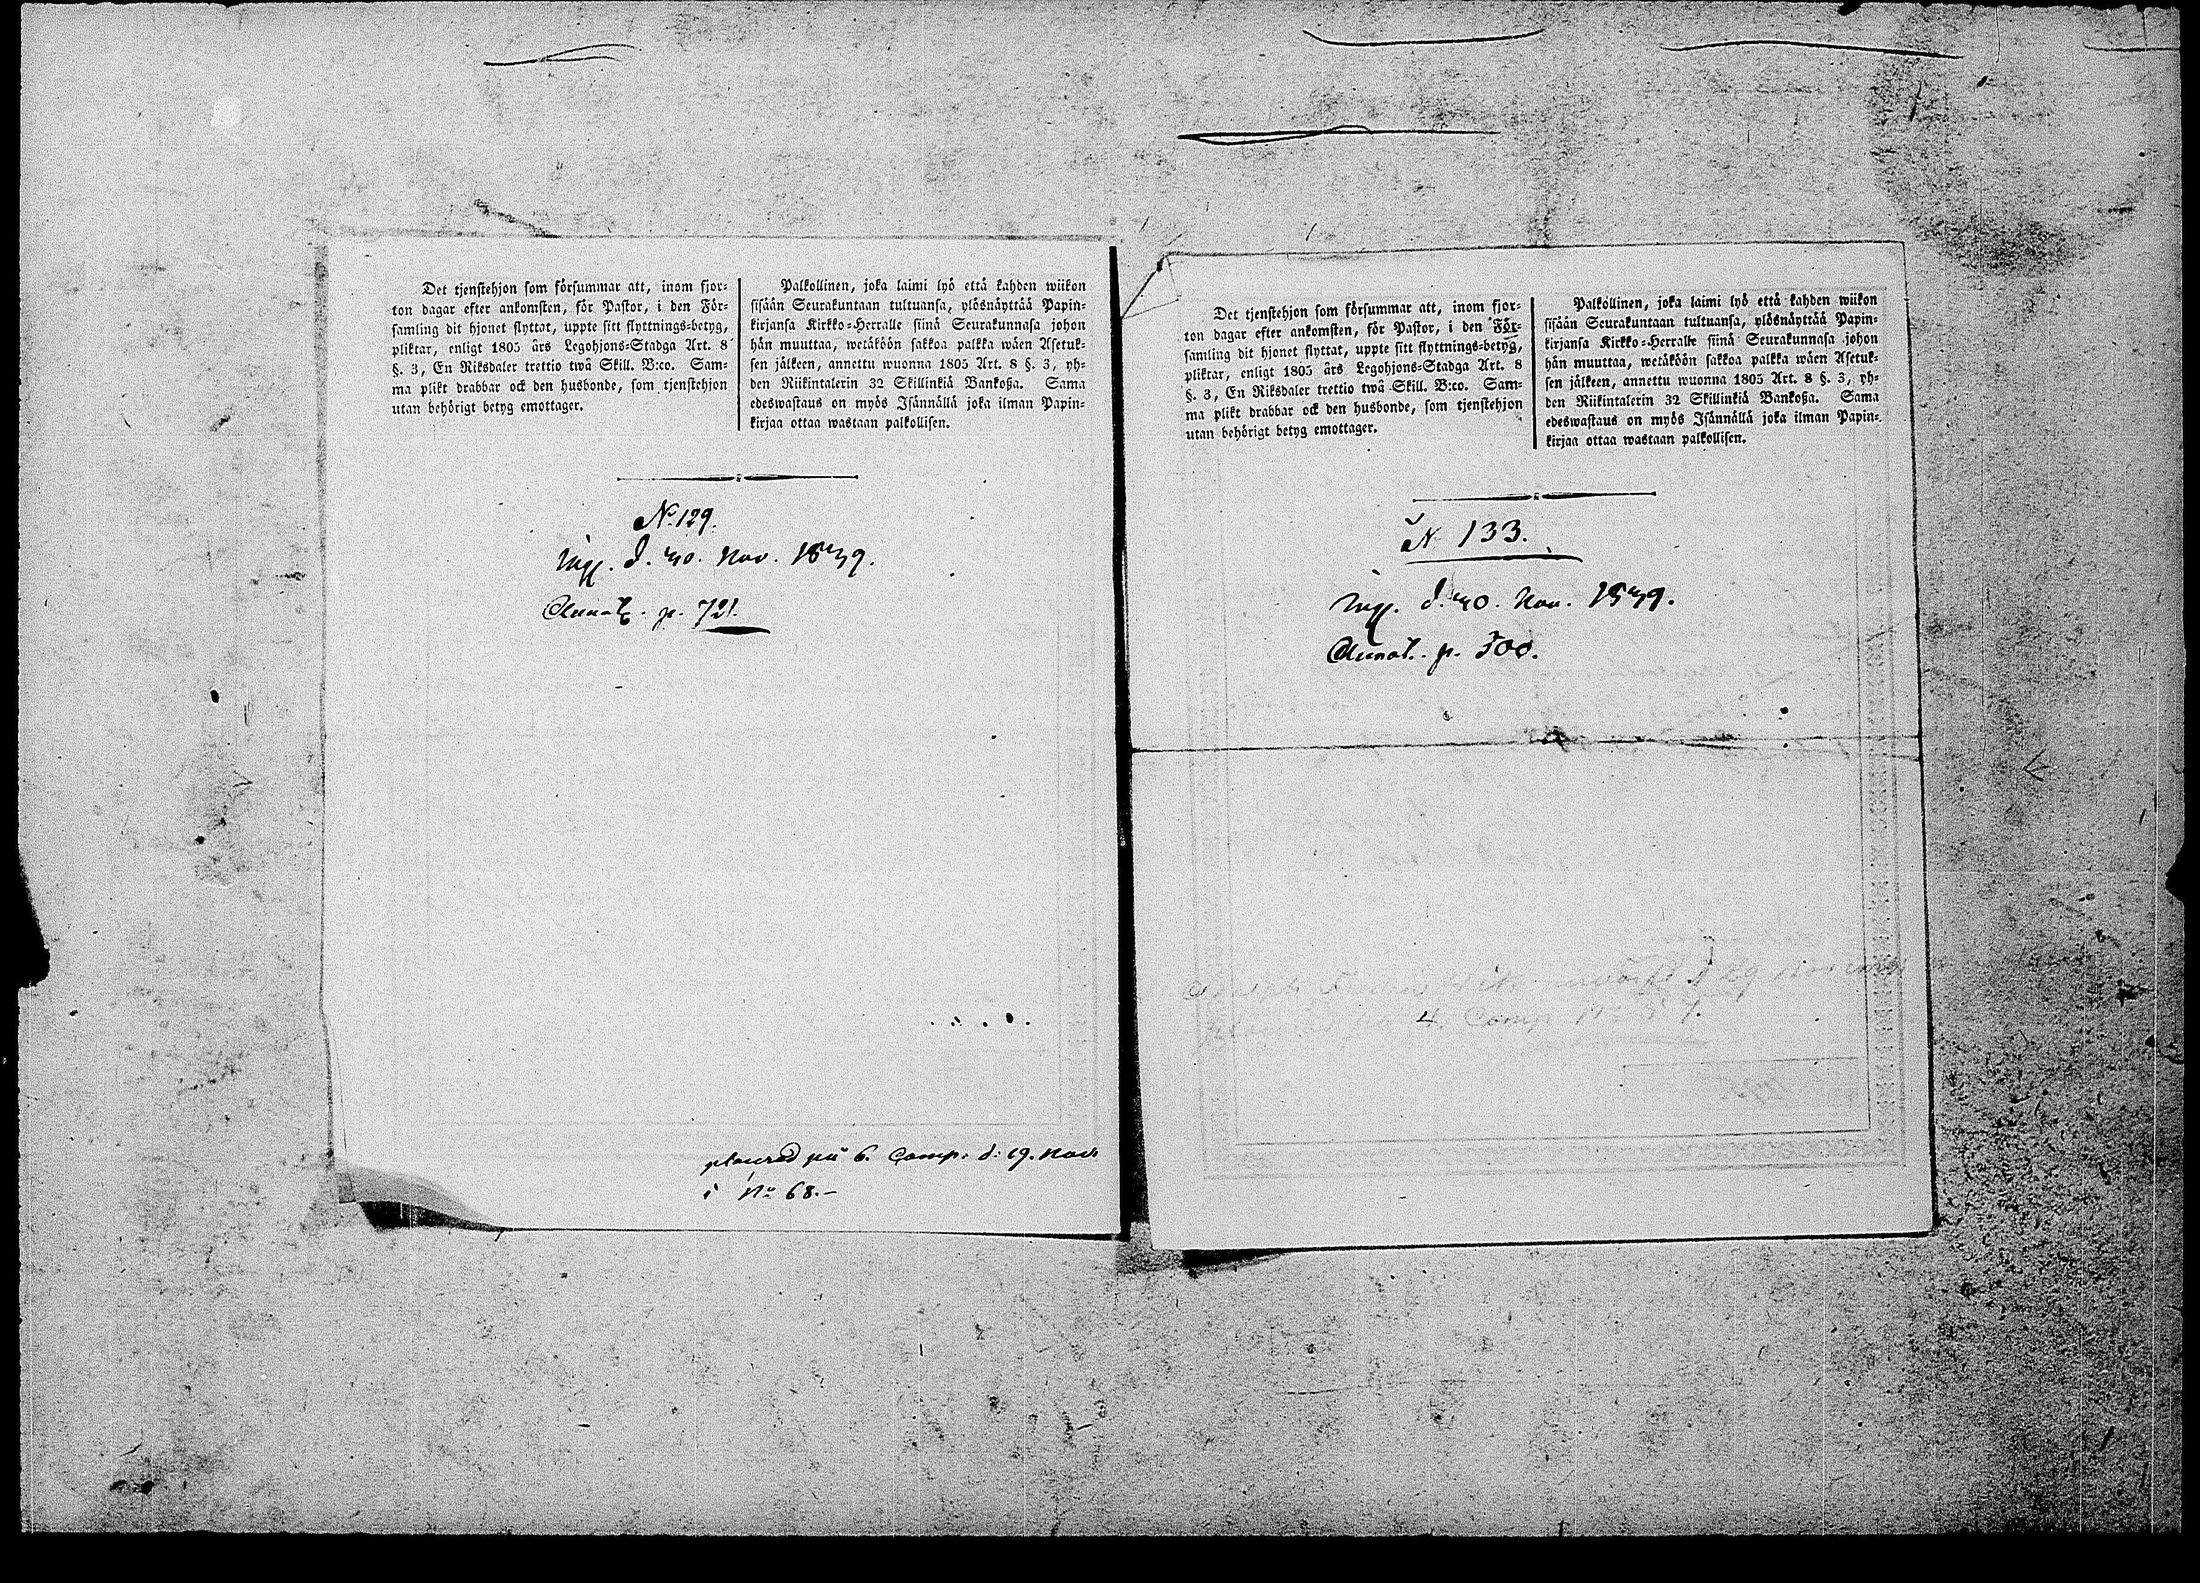 Det tjenstehjon som försummar att, inom fjor-
ton dagar efter ankomsten, för Pastor, i den För-
samling dit hjonet flyttat, uppte sitt flyttnings-betyg,
pliktar, enligt 1805 års Legohjons-Stadga Art. 8
§. 3, En Riksdaler trettio twå Skill. B:co. Sam-
ma plikt drabbar ock den husbonde, som tjenstehjon
utan behörigt betyg emottager.
Palkollinen, joka laimi lyö että kahden wiikon
sisään Seurakuntaan tultuansa, ylösnäyttää Papin-
kirjansa Kirkko-Herralle siinä Seurakunnasa johon
hän muuttaa, wetäköön sakkoa palkka wäen Asetuk-
sen jälkeen, annettu wuonna 1805 Art. 8 §. 3, yh-
den Riikintalerin 32 Skillinkiä Bankoßa. Sama
edeswastaus on myös Isännällä joka ilman Papin-
kirjaa ottaa wastaan palkollisen.
No 129.
d. Nov.
p. 721.
på 6. Comp. d. 19. Nov
i No 68.-
Det tjenstehjon som försummar att, inom fjor-
ton dagar efter ankomsten, för Pastor, i den För-
samling dit hjonet flyttat, uppte sitt flyttnings-betyg,
pliktar, enligt 1805 års Legohjons-Stadga Art. 8
§. 3, En Riksdaler trettio twå Skill. B:co. Sam-
ma plikt drabbar ock den husbonde, som tjenstehjon
utan behörigt betyg emottager.
Palkollinen, joka laimi lyö että kahden wiikon
sisään Seurakuntaan tultuansa, ylösnäyttää Papin-
kirjansa Kirkko-Herralle siinä Seurakunnasa johon
hän muuttaa, wetäköön sakkoa palkka wäen Asetuk-
sen jälkeen, annettu wuonna 1805 Art. 8 §. 3, yh-
den Riikintalerin 32 Skillinkiä Bankoßa. Sama
edeswastaus on myös Isännällä joka ilman Papin-
kirjaa ottaa wastaan palkollisen.
N 133.
d. Nov.
p. 300.
4. Comp.